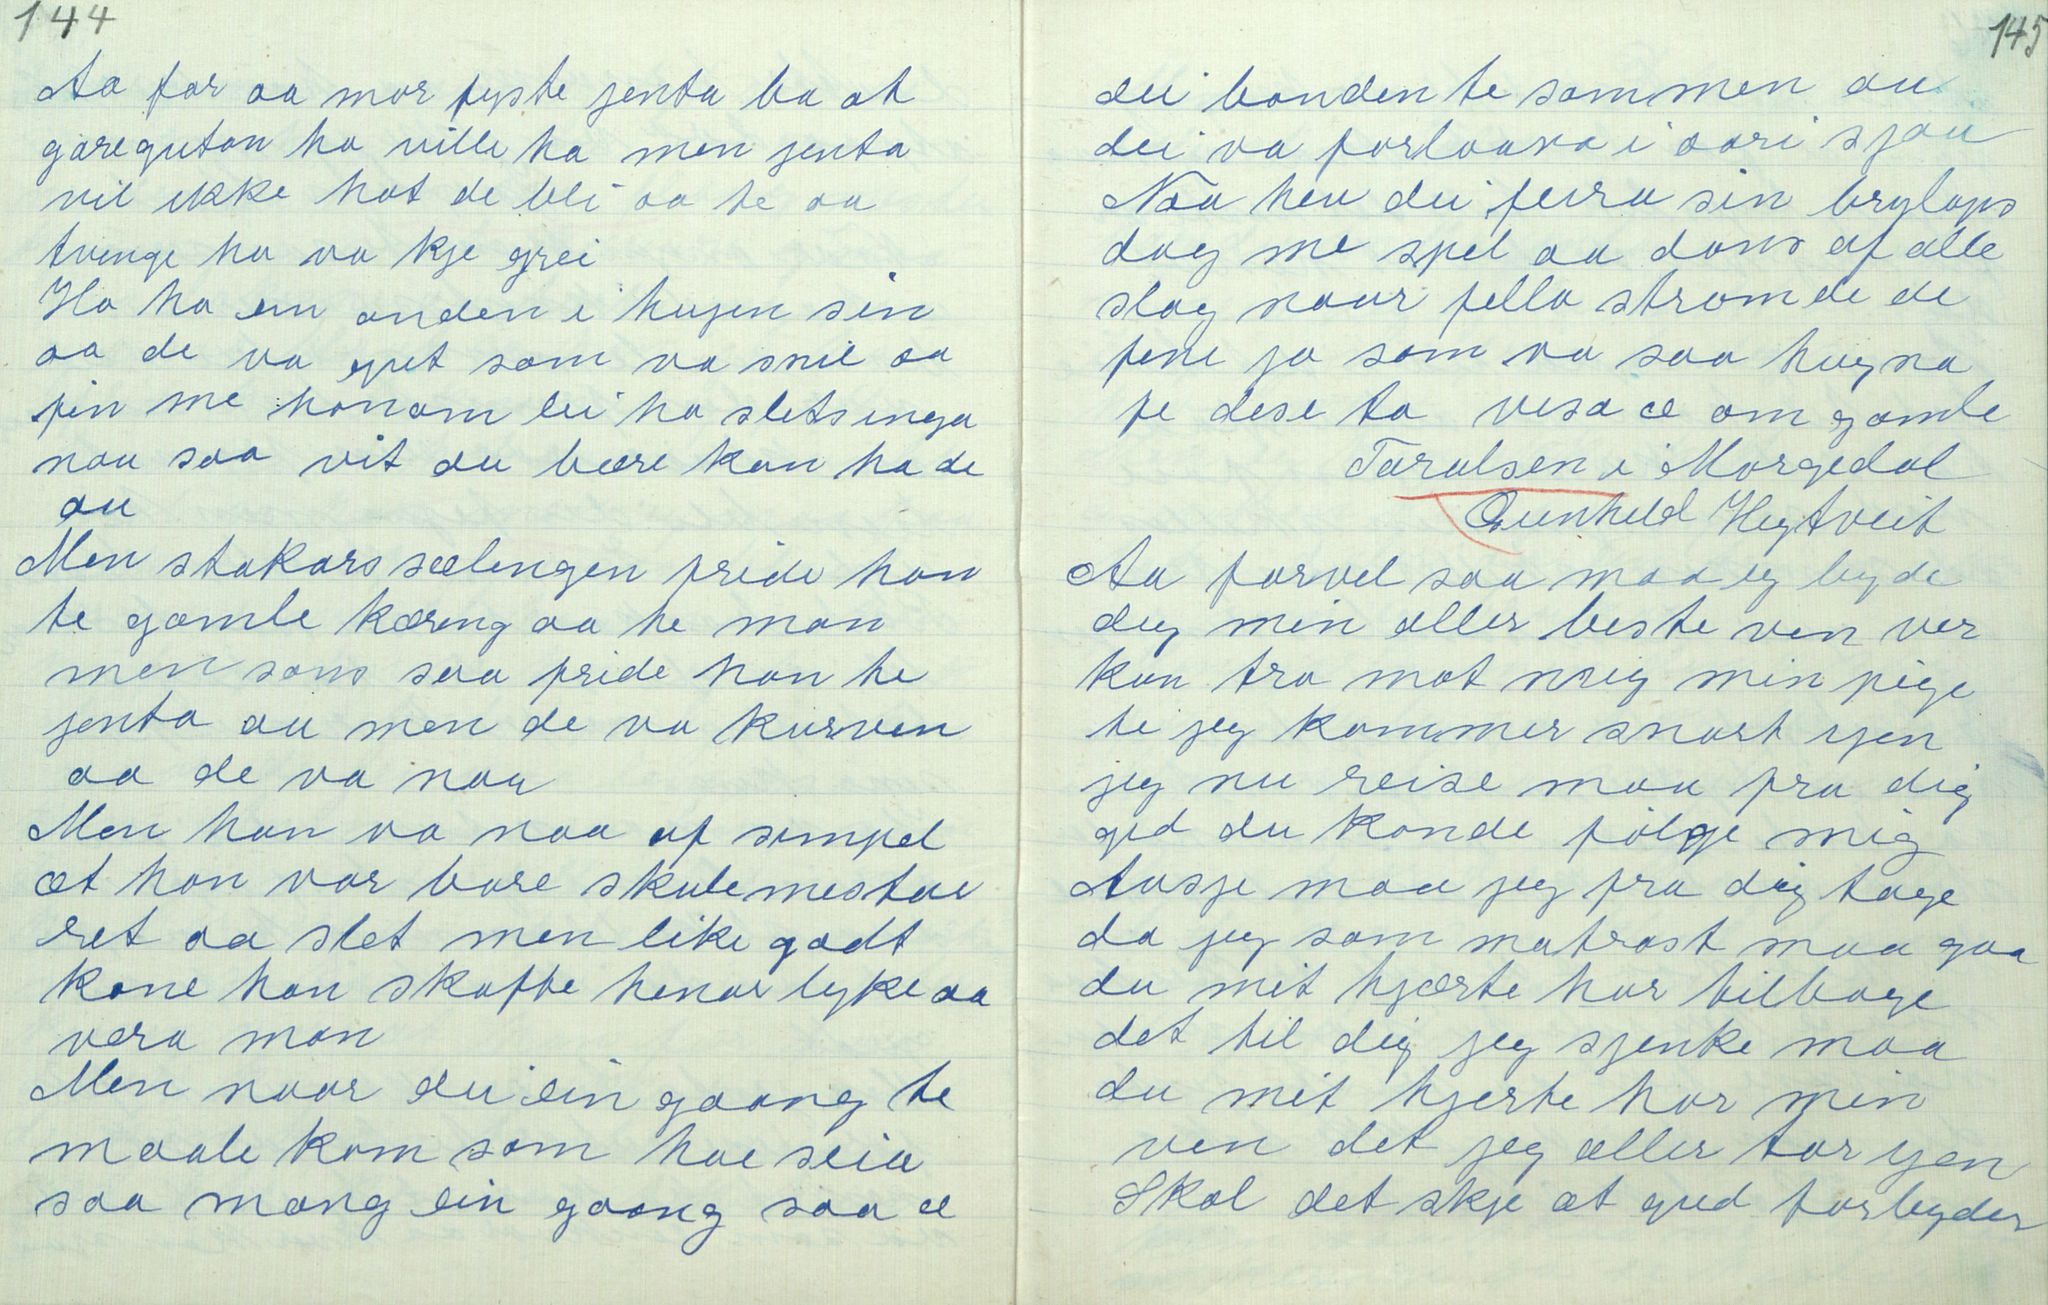 144
Aa far aa mor fyste jenta ba at
garegutan ha ville ha men jenta
vil ikke hat de bli aa te aa
tvinge ha va kje grei
Ho ha ein anden i hugen sin
aa de va gut som va snil aa
fin me honom lei ha slets inga
nau saa vit du bære kan ha de
au
Men stakars sælengen fride han
te gamle kæring aa te man
men sans saa fride han te
jenta au men de va kurven
aa de va nau
Men han va naa af simpel
æt han var bare skulemestar
ret aa slet men like godt
kone han skaffe henar lyke aa
vera man
Men naar dei ein goong te
maale kom som hae seia
saa mang ein goong saa æ
145
dei bonden te sammen au
dei va forloava i aari sjau
Naa heu dei feira sin brylops
dag me spel aa dans af alle
slag naar fella strømde de
fene ja som va saa hugna
fe dese ta visa æ om gamle
Taralsen i Morgedal
Gunhild Hegtveit
Aa farvel saa maa eg byde
dig min aller beste ven ver
kun tro mot mig min pige
te jeg kommer snart igen
jeg nu reise maa fra dig
gid du konde følge mig
Avsje maa jeg fra dig tage
da jeg som matrost maa gaa
du mit hjærte har tilbage
det til dig jeg sjenke maa
du mit hjerte har min
ven det jeg aller tar igen
Skal det skje at gud forbyder